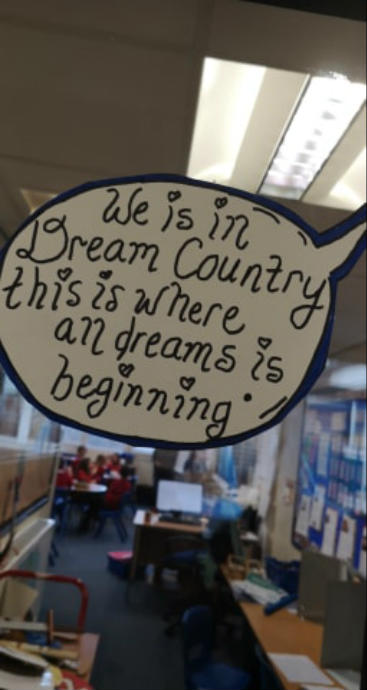 We is in
Dream Country
this is where
all dreams is
beginning.